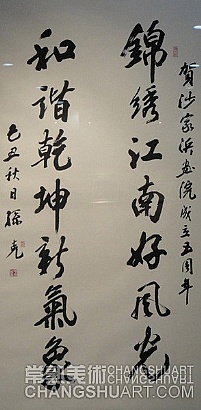 賀沙家浜画院成立五周年
錦绣江南好風光
和谐乾坤新氣象
己丑秋日孫克
常熟美術 CHANGSHUART
CHANGSHUART.COM